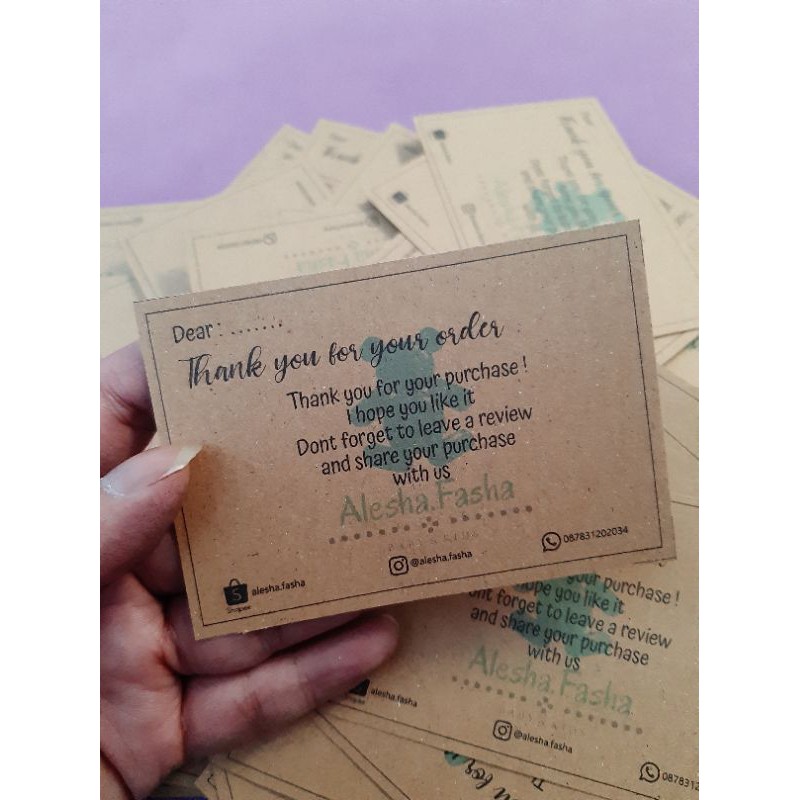 Dear : .......
Thank you for your order
Thank you for your purchase !
I hope you like it
Dont forget to leave a review
and share your purchase
with us
Alesha.Fasha
S alesha.fasha
Shopee
@alesha.fasha
087831202034
your purchase !
hope you like it
ont forget to leave a review
and share your purchase
with us
Alesha.Fasha
alesha.fasha
@alesha.fasha
0878312